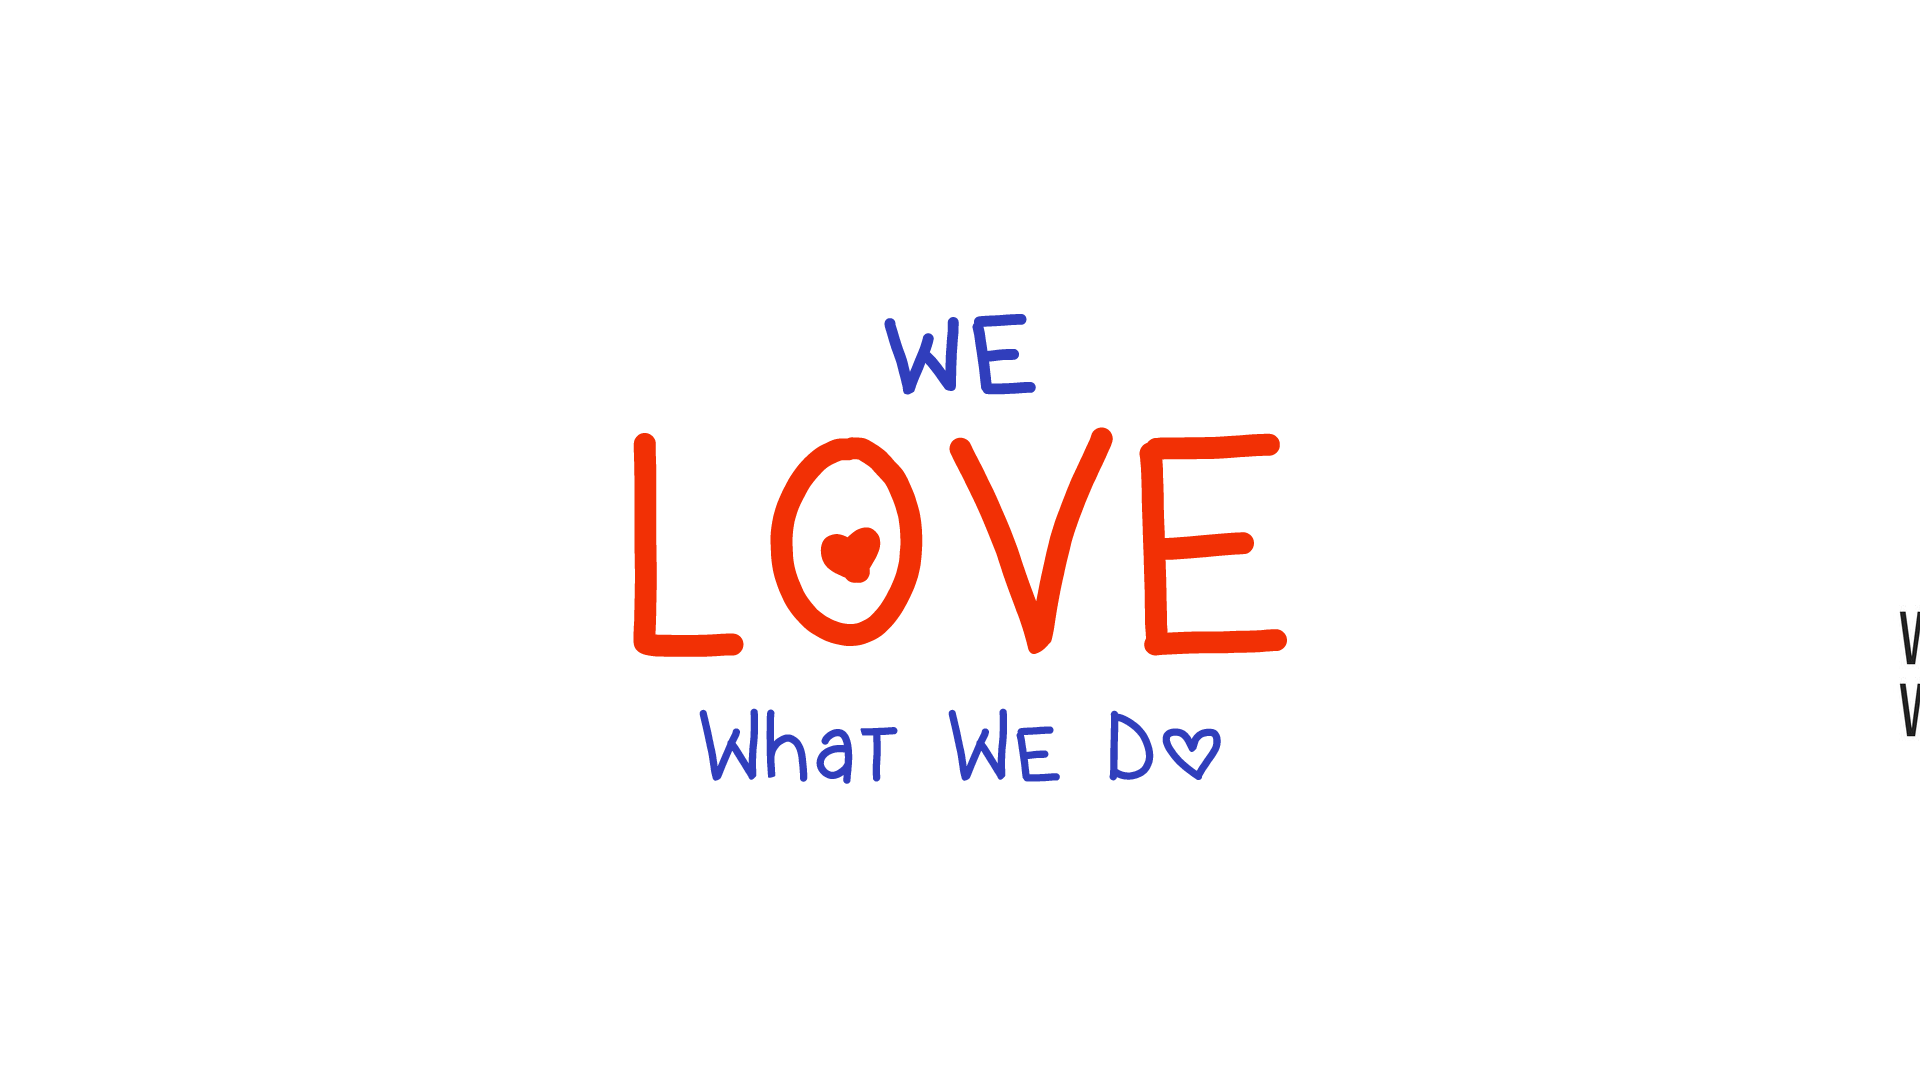 WE
LOVE
What WE D♡
W
W